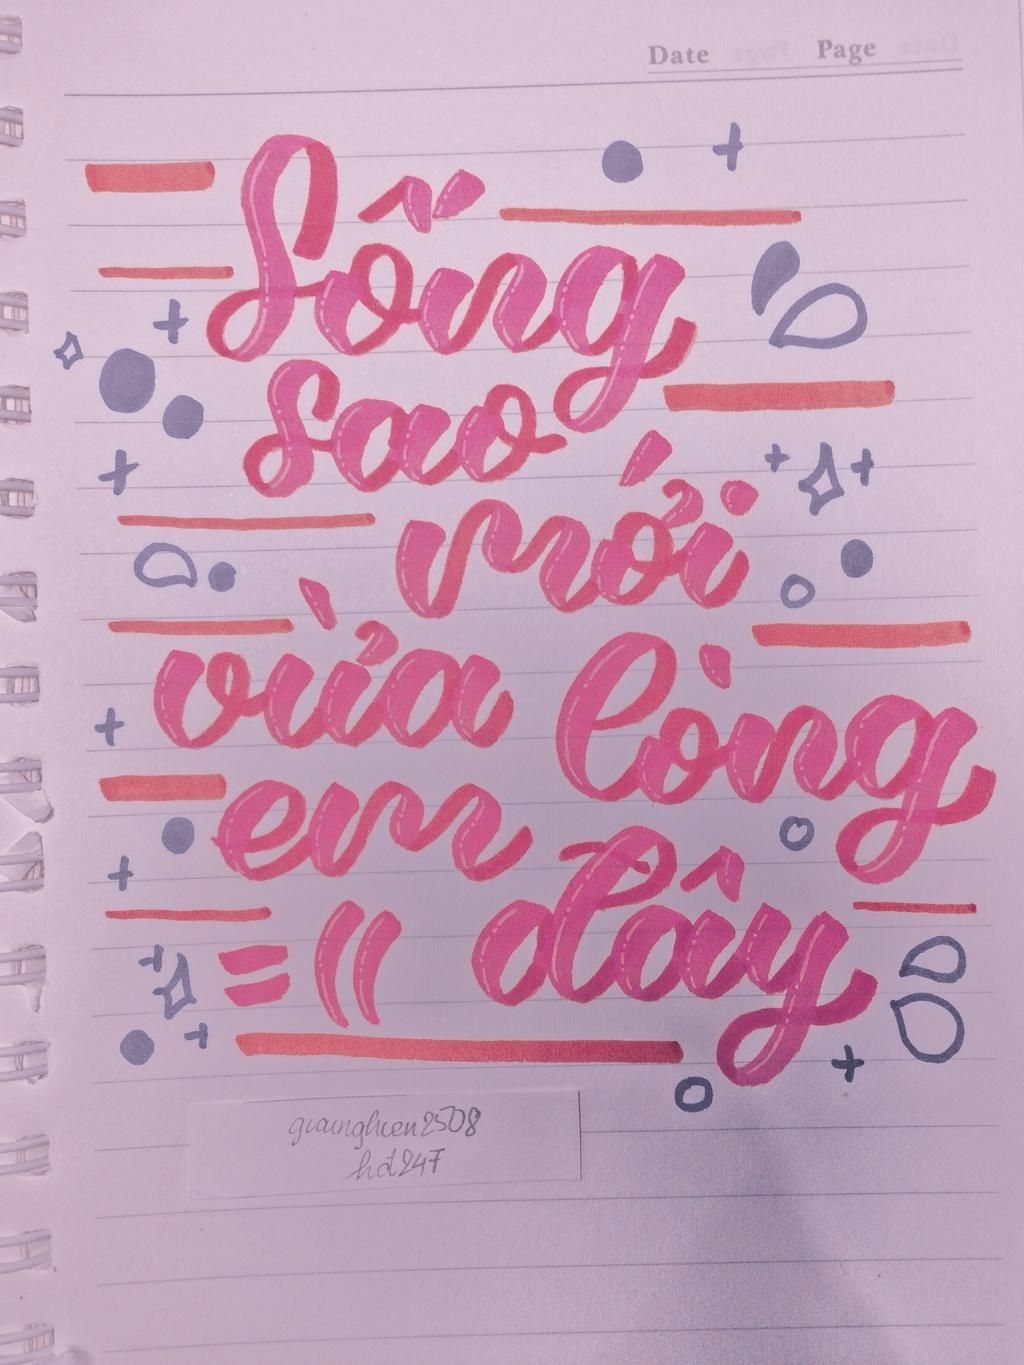 Date Page
Sống
sao
mới
vừa lòng
em
=(( đây
hd247